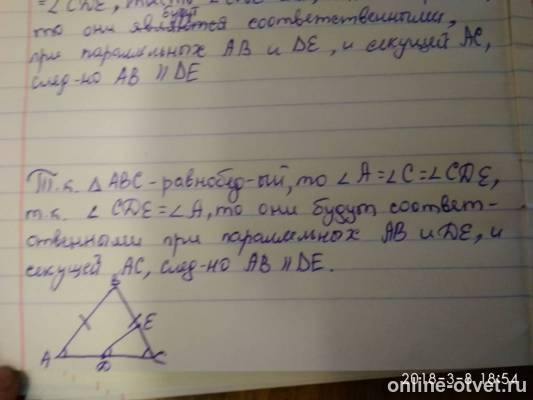 = ∠ CDE,
будут
то они являются соответственными,
при параллельных AB и DE, и секущей AC,
след-но AB || DE
Т.к. △ ABC - равнобед-ый, то ∠ A = ∠ C = ∠ CDE,
т.к. ∠ CDE = ∠ A, то они будут соответ-
ственными при параллельных AB и DE, и
секущей AC, след-но AB || DE.
B
E
A
D
C
2018-3-8 18:54
online-otvet.ru